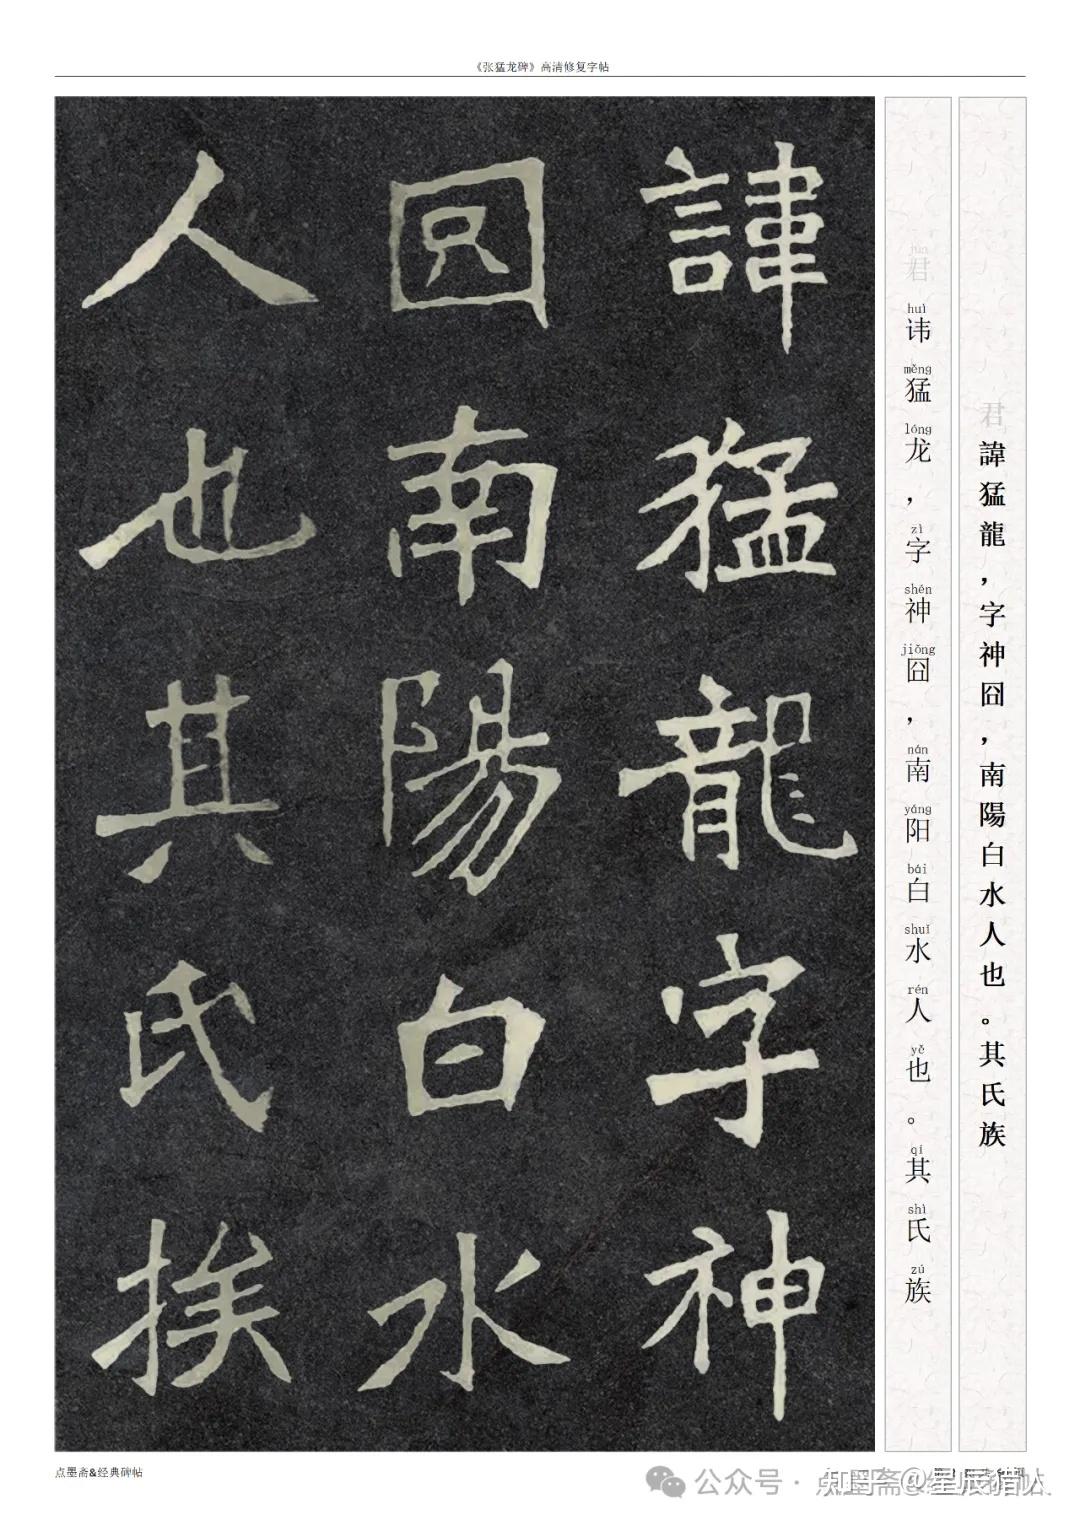 《张猛龙碑》高清修复字帖
諱猛龍字神
囧南陽白水
人也其氏族
君諱猛龍，字神囧，南陽白水人也。其氏族
jūn huì měng lóng zì shén jiǒng nán yáng bái shuǐ rén yě qí shì zú
君讳猛龙，字神囧，南阳白水人也。其氏族
点墨斋&经典碑帖
公众号·点墨斋
知乎 @星辰猎帖